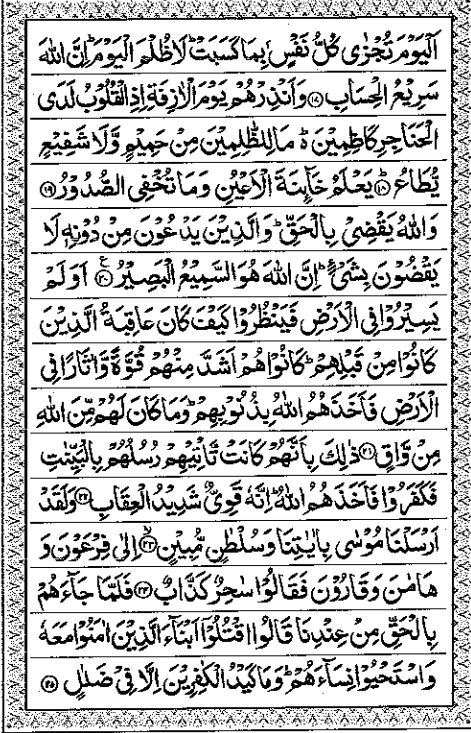 اَلۡیَوۡمَ تُجۡزٰی کُلُّ نَفۡسٍۭ بِمَا کَسَبَتۡ ؕ لَا ظُلۡمَ الۡیَوۡمَ ؕ اِنَّ اللّٰہَ
سَرِیۡعُ الۡحِسَابِ ﴿۱۷﴾ وَ اَنۡذِرۡہُمۡ یَوۡمَ الۡاٰزِفَۃِ اِذِ الۡقُلُوۡبُ لَدَی
الۡحَنَاجِرِ کٰظِمِیۡنَ ۬ؕ مَا لِلظّٰلِمِیۡنَ مِنۡ حَمِیۡمٍ وَّ لَا شَفِیۡعٍ
یُّطَاعُ ﴿۱۸﴾ یَعۡلَمُ خَآئِنَۃَ الۡاَعۡیُنِ وَ مَا تُخۡفِی الصُّدُوۡرُ ﴿۱۹﴾
وَ اللّٰہُ یَقۡضِیۡ بِالۡحَقِّ ؕ وَ الَّذِیۡنَ یَدۡعُوۡنَ مِنۡ دُوۡنِہٖ لَا
یَقۡضُوۡنَ بِشَیۡءٍ ؕ اِنَّ اللّٰہَ ہُوَ السَّمِیۡعُ الۡبَصِیۡرُ ﴿۲۰﴾ ع اَوَ لَمۡ
یَسِیۡرُوۡا فِی الۡاَرۡضِ فَیَنۡظُرُوۡا کَیۡفَ کَانَ عَاقِبَۃُ الَّذِیۡنَ
کَانُوۡا مِنۡ قَبۡلِہِمۡ ؕ کَانُوۡا ہُمۡ اَشَدَّ مِنۡہُمۡ قُوَّۃً وَّ اٰثَارًا فِی
الۡاَرۡضِ فَاَخَذَہُمُ اللّٰہُ بِذُنُوۡبِہِمۡ ؕ وَ مَا کَانَ لَہُمۡ مِّنَ اللّٰہِ
مِنۡ وَّاقٍ ﴿۲۱﴾ ذٰلِکَ بِاَنَّہُمۡ کَانَتۡ تَّاۡتِیۡہِمۡ رُسُلُہُمۡ بِالۡبَیِّنٰتِ
فَکَفَرُوۡا فَاَخَذَہُمُ اللّٰہُ ؕ اِنَّہٗ قَوِیٌّ شَدِیۡدُ الۡعِقَابِ ﴿۲۲﴾ وَ لَقَدۡ
اَرۡسَلۡنَا مُوۡسٰی بِاٰیٰتِنَا وَ سُلۡطٰنٍ مُّبِیۡنٍ ﴿ۙ۲۳﴾ اِلٰی فِرۡعَوۡنَ وَ
ہَامٰنَ وَ قَارُوۡنَ فَقَالُوۡا سٰحِرٌ کَذَّابٌ ﴿۲۴﴾ فَلَمَّا جَآءَہُمۡ
بِالۡحَقِّ مِنۡ عِنۡدِنَا قَالُوا اقۡتُلُوۡۤا اَبۡنَآءَ الَّذِیۡنَ اٰمَنُوۡا مَعَہٗ
وَ اسۡتَحۡیُوۡا نِسَآءَہُمۡ ؕ وَ مَا کَیۡدُ الۡکٰفِرِیۡنَ اِلَّا فِیۡ ضَلٰلٍ ﴿۲۵﴾